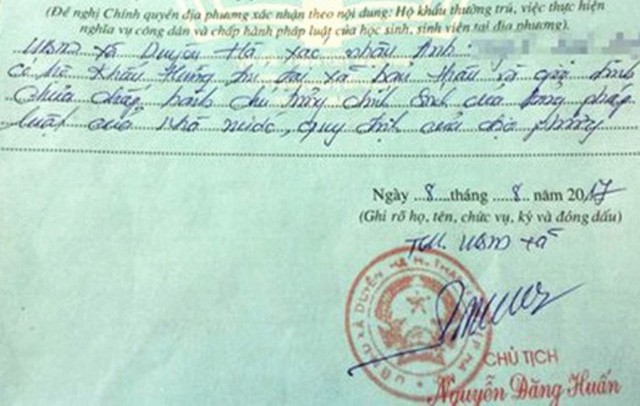 (Đề nghị Chính quyền địa phương xác nhận theo nội dung: Hộ khẩu thường trú, việc thực hiện
nghĩa vụ công dân và chấp hành pháp luật của học sinh, sinh viên tại địa phương)
UBND xã Duyên Hà xác nhận
có hộ khẩu thường trú tại xã bản thân và gia đình
chưa chấp hành chủ trương chính sách của pháp
luật của nhà nước, quy định của địa phương
Ngày 8 tháng 8 năm 2017
(Ghi rõ họ, tên, chức vụ, ký và đóng dấu)
TM. UBND xã
CHỦ TỊCH
Nguyễn Đăng Huấn